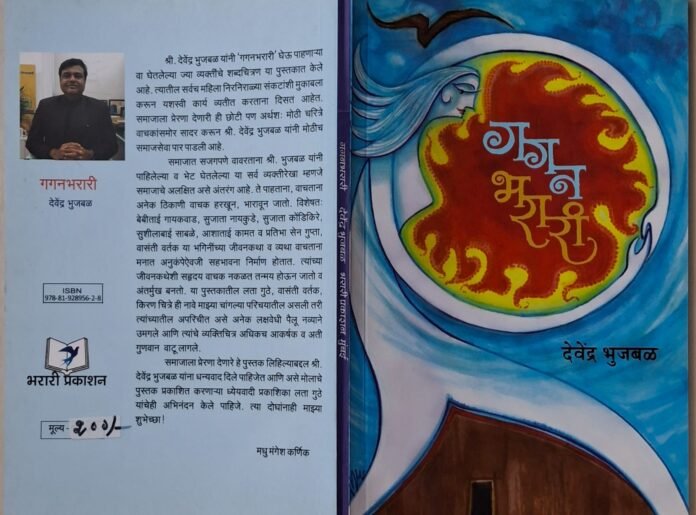 गगनभरारी
देवेंद्र भुजबळ
ISBN
978-81-928956-2-8
भरारी प्रकाशन
मूल्य - २००/-
श्री. देवेंद्र भुजबळ यांनी 'गगनभरारी' घेऊ पाहणाऱ्या
वा घेतलेल्या ज्या व्यक्तींचे शब्दचित्रण या पुस्तकात केले
आहे. त्यातील सर्वच महिला निरनिराळ्या संकटांशी मुकाबला
करून यशस्वी कार्य व्यतीत करताना दिसत आहेत.
समाजाला प्रेरणा देणारी ही छोटी पण अर्थशः मोठी चरित्रे
वाचकांसमोर सादर करून श्री. देवेंद्र भुजबळ यांनी मोठीच
समाजसेवा पार पाडली आहे.
समाजात सजगपणे वावरताना श्री. भुजबळ यांनी
पाहिलेल्या व भेट घेतलेल्या या सर्व व्यक्तीरेखा म्हणजे
समाजाचे अलक्षित असे अंतरंग आहे. ते पाहताना, वाचताना
अनेक ठिकाणी वाचक हरखून, भारावून जातो. विशेषतः
बेबीताई गायकवाड, सुजाता नायकुडे, सुजाता कोंडिकिरे,
सुशीलाबाई साबळे, आशाताई कामत व प्रतिभा सेन गुप्ता,
वासंती वर्तक या भगिनींच्या जीवनकथा व व्यथा वाचताना
मनात अनुकंपेऐवजी सहभावना निर्माण होतात. त्यांच्या
जीवनकथेशी सहृदय वाचक नकळत तन्मय होऊन जातो व
अंतर्मुख बनतो. या पुस्तकातील लता गुठे, वासंती वर्तक,
किरण चित्रे ही नावे माझ्या चांगल्या परिचयातील असली तरी
त्यांच्यातील अपरिचीत असे अनेक लक्षवेधी पैलू नव्याने
उमगले आणि त्यांचे व्यक्तिचित्र अधिकच आकर्षक व अती
गुणवान वाटू लागले.
समाजाला प्रेरणा देणारे हे पुस्तक लिहिल्याबद्दल श्री.
देवेंद्र भुजबळ यांना धन्यवाद दिले पाहिजेत आणि असे मोलाचे
पुस्तक प्रकाशित करणाऱ्या ध्येयवादी प्रकाशिका लता गुठे
यांचेही अभिनंदन केले पाहिजे. त्या दोघांनाही माझ्या
शुभेच्छा!
मधु मंगेश कर्णिक
गगनभरारी देवेंद्र भुजबळ भरारी प्रकाशन मुंबई
गगन
भरारी
देवेंद्र भुजबळ